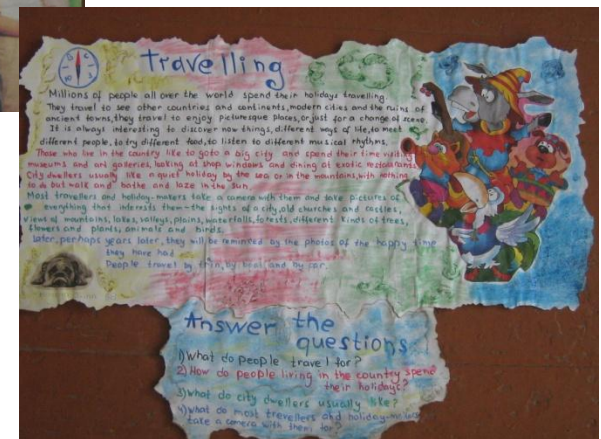 travelling
Millions of people all over the world spend their holidays travelling.
They travel to see other countries and continents, modern cities and the ruins of
ancient towns, they travel to enjoy picturesque places, or just for a change of scene.
It is always interesting to discover new things, different ways of life, to meet
different people, to try different food, to listen to different musical rhythms.
Those who live in the country like to go to a big city and spend their time visiting
museums and art galleries, looking at shop windows and dining at exotic restaurants.
City dwellers usually like a quiet holiday by the sea or in the mountains, with nothing
to do but walk and bathe and laze in the sun.
Most travellers and holiday-makers take a camera with them and take pictures of
everything that interests them—the sights of a city, old churches and castles,
views of mountains, lakes, valleys, plains, waterfalls, forests, different kinds of trees,
flowers and plants, animals and birds.
Later, perhaps years later, they will be reminded by the photos of the happy time
they have had
People travel by by boat and by car.
Answer the
questions
1) What do people travel for?
2) How do people living in the country spend
their holidays?
3) What do city dwellers usually like?
4) What do most travellers and holiday-
take a camera with them for?